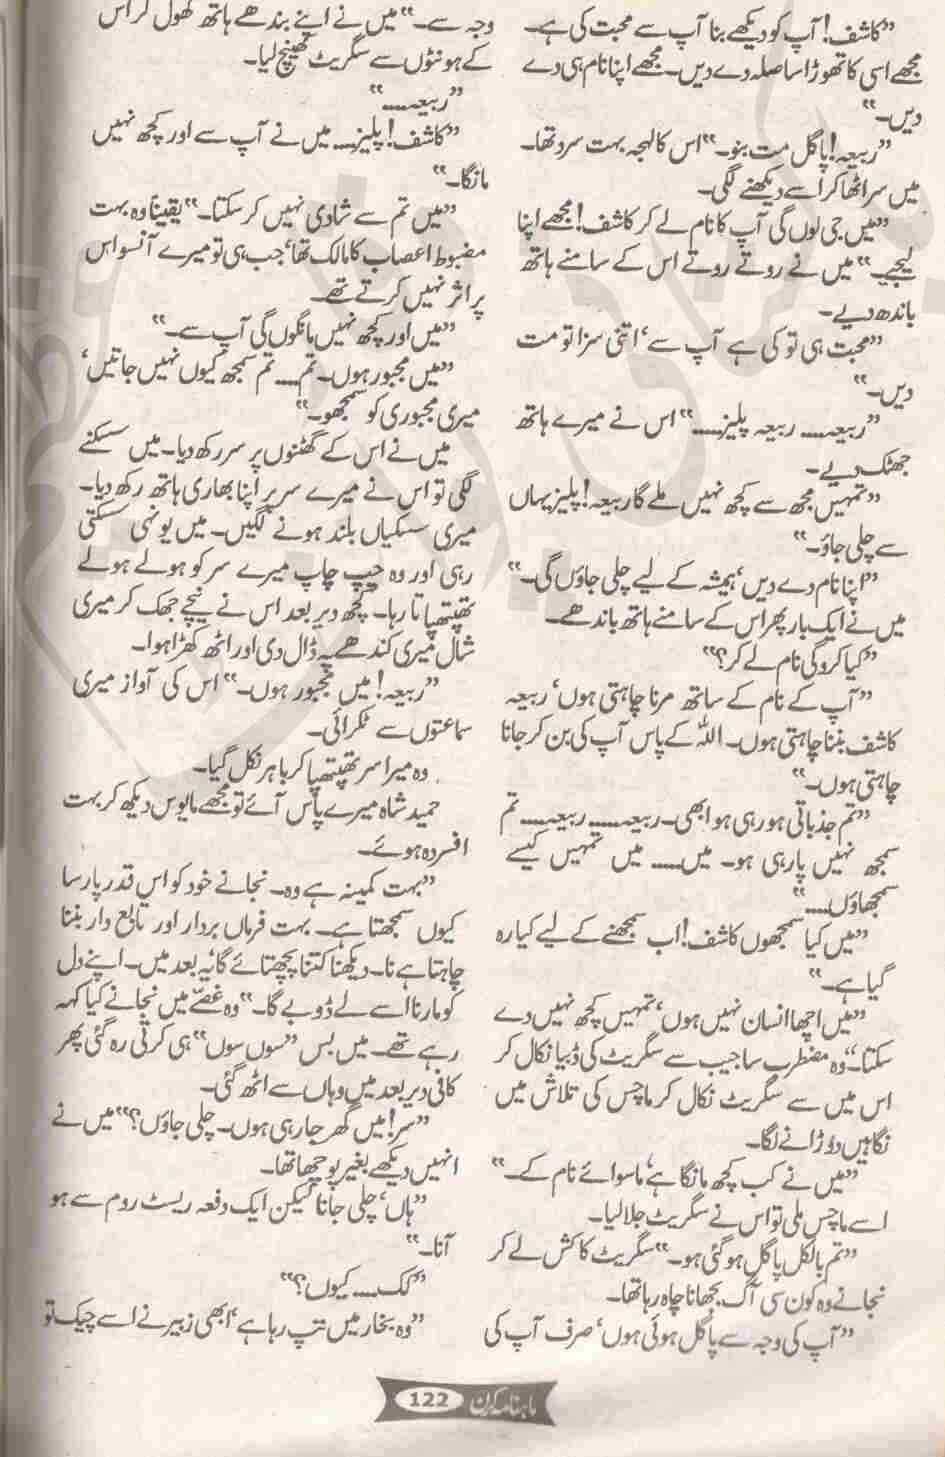 ”کاشف! آپ کو دیکھے بنا آپ سے محبت کی ہے۔
مجھے اسی کا تھوڑا سا صلہ دے دیں۔ مجھے اپنا نام ہی دے
دیں۔“
”ربیعہ! پاگل مت بنو۔“ اس کا لہجہ بہت سرد تھا۔
میں سر اٹھا کر اسے دیکھنے لگی۔
”میں جی لوں گی آپ کا نام لے کر کاشف! مجھے اپنا
لیجیے۔“ میں نے روتے روتے اس کے سامنے ہاتھ
باندھ دیے۔
”محبت ہی تو کی ہے آپ سے‘ اتنی سزا تو مت
دیں۔“
”ربیعہ۔۔۔۔ ربیعہ پلیز۔۔۔۔“ اس نے میرے ہاتھ
جھٹک دیے۔
”تمہیں مجھ سے کچھ نہیں ملے گا ربیعہ! پلیز یہاں
سے چلی جاؤ۔“
”اپنا نام دے دیں‘ ہمیشہ کے لیے چلی جاؤں گی۔“
میں نے ایک بار پھر اس کے سامنے ہاتھ باندھے۔
”کیا کرو گی نام لے کر؟“
”آپ کے نام کے ساتھ مرنا چاہتی ہوں‘ ربیعہ
کاشف بننا چاہتی ہوں۔ اللہ کے پاس آپ کی بن کر جانا
چاہتی ہوں۔“
”تم جذباتی ہو رہی ہو ابھی۔ ربیعہ۔۔۔۔ ربیعہ۔۔۔۔ تم
سمجھ نہیں پا رہی ہو۔ میں۔۔۔۔ میں تمہیں کیسے
سمجھاؤں۔۔۔۔“
”میں کیا سمجھوں کاشف! اب سمجھنے کے لیے کیا رہ
گیا ہے۔“
”میں اچھا انسان نہیں ہوں‘ تمہیں کچھ نہیں دے
سکتا۔“ وہ مضطرب سا جیب سے سگریٹ کی ڈبیا نکال کر
اس میں سے سگریٹ نکال کر ماچس کی تلاش میں
نگاہیں دوڑانے لگا۔
”میں نے کب کچھ مانگا ہے‘ ماسوائے نام کے۔“
اسے ماچس ملی تو اس نے سگریٹ جلا لیا۔
”تم بالکل پاگل ہو گئی ہو۔“ سگریٹ کا کش لے کر
نجانے وہ کون سی آگ بجھانا چاہ رہا تھا۔
”آپ کی وجہ سے پاگل ہوئی ہوں‘ صرف آپ کی
وجہ سے۔“ میں نے اپنے بندھے ہاتھ کھول کر اس
کے ہونٹوں سے سگریٹ کھینچ لیا۔
”ربیعہ۔۔۔۔“
”کاشف! پلیز۔۔۔ میں نے آپ سے اور کچھ نہیں
مانگا۔“
”میں تم سے شادی نہیں کر سکتا۔“ یقیناً وہ بہت
مضبوط اعصاب کا مالک تھا‘ جب ہی تو میرے آنسو اس
پر اثر نہیں کرتے تھے۔
”میں اور کچھ نہیں مانگوں گی آپ سے۔“
”میں مجبور ہوں۔ تم۔۔۔۔ تم سمجھ کیوں نہیں جاتیں‘
میری مجبوری کو سمجھو۔“
میں نے اس کے گھٹنوں پر سر رکھ دیا۔ میں سسکنے
لگی تو اس نے میرے سر پر اپنا بھاری ہاتھ رکھ دیا۔
میری سسکیاں بلند ہونے لگیں۔ میں یونہی سسکتی
رہی اور وہ چپ چاپ میرے سر کو ہولے ہولے
تھپتھپاتا رہا۔ کچھ دیر بعد اس نے نیچے جھک کر میری
شال میری کندھے پہ ڈال دی اور اٹھ کھڑا ہوا۔
”ربیعہ! میں مجبور ہوں۔“ اس کی آواز میری
سماعتوں سے ٹکرائی۔
وہ میرا سر تھپتھپا کر باہر نکل گیا۔
حمید شاہ میرے پاس آئے تو مجھے مایوس دیکھ کر بہت
افسردہ ہوئے۔
”بہت کمینہ ہے وہ۔ نجانے خود کو اس قدر پارسا
کیوں سمجھتا ہے۔ بہت فرماں بردار اور تابع دار بننا
چاہتا ہے نا۔ دیکھنا کتنا پچھتائے گا یہ بعد میں۔ اپنے دل
کو مارنا اسے لے ڈوبے گا۔“ وہ غصے میں نجانے کیا کہہ
رہے تھے۔ میں بس ”سوں سوں“ ہی کرتی رہ گئی پھر
کافی دیر بعد میں وہاں سے اٹھ گئی۔
”سر! میں گھر جا رہی ہوں۔ چلی جاؤں؟“ میں نے
انہیں دیکھے بغیر پوچھا تھا۔
”ہاں‘ چلی جانا لیکن ایک دفعہ ریسٹ روم سے ہو
آنا۔“
”کک۔۔۔۔ کیوں؟“
”وہ بخار میں تپ رہا ہے‘ ابھی زبیر نے اسے چیک تو
ماہنامہ کرن 122